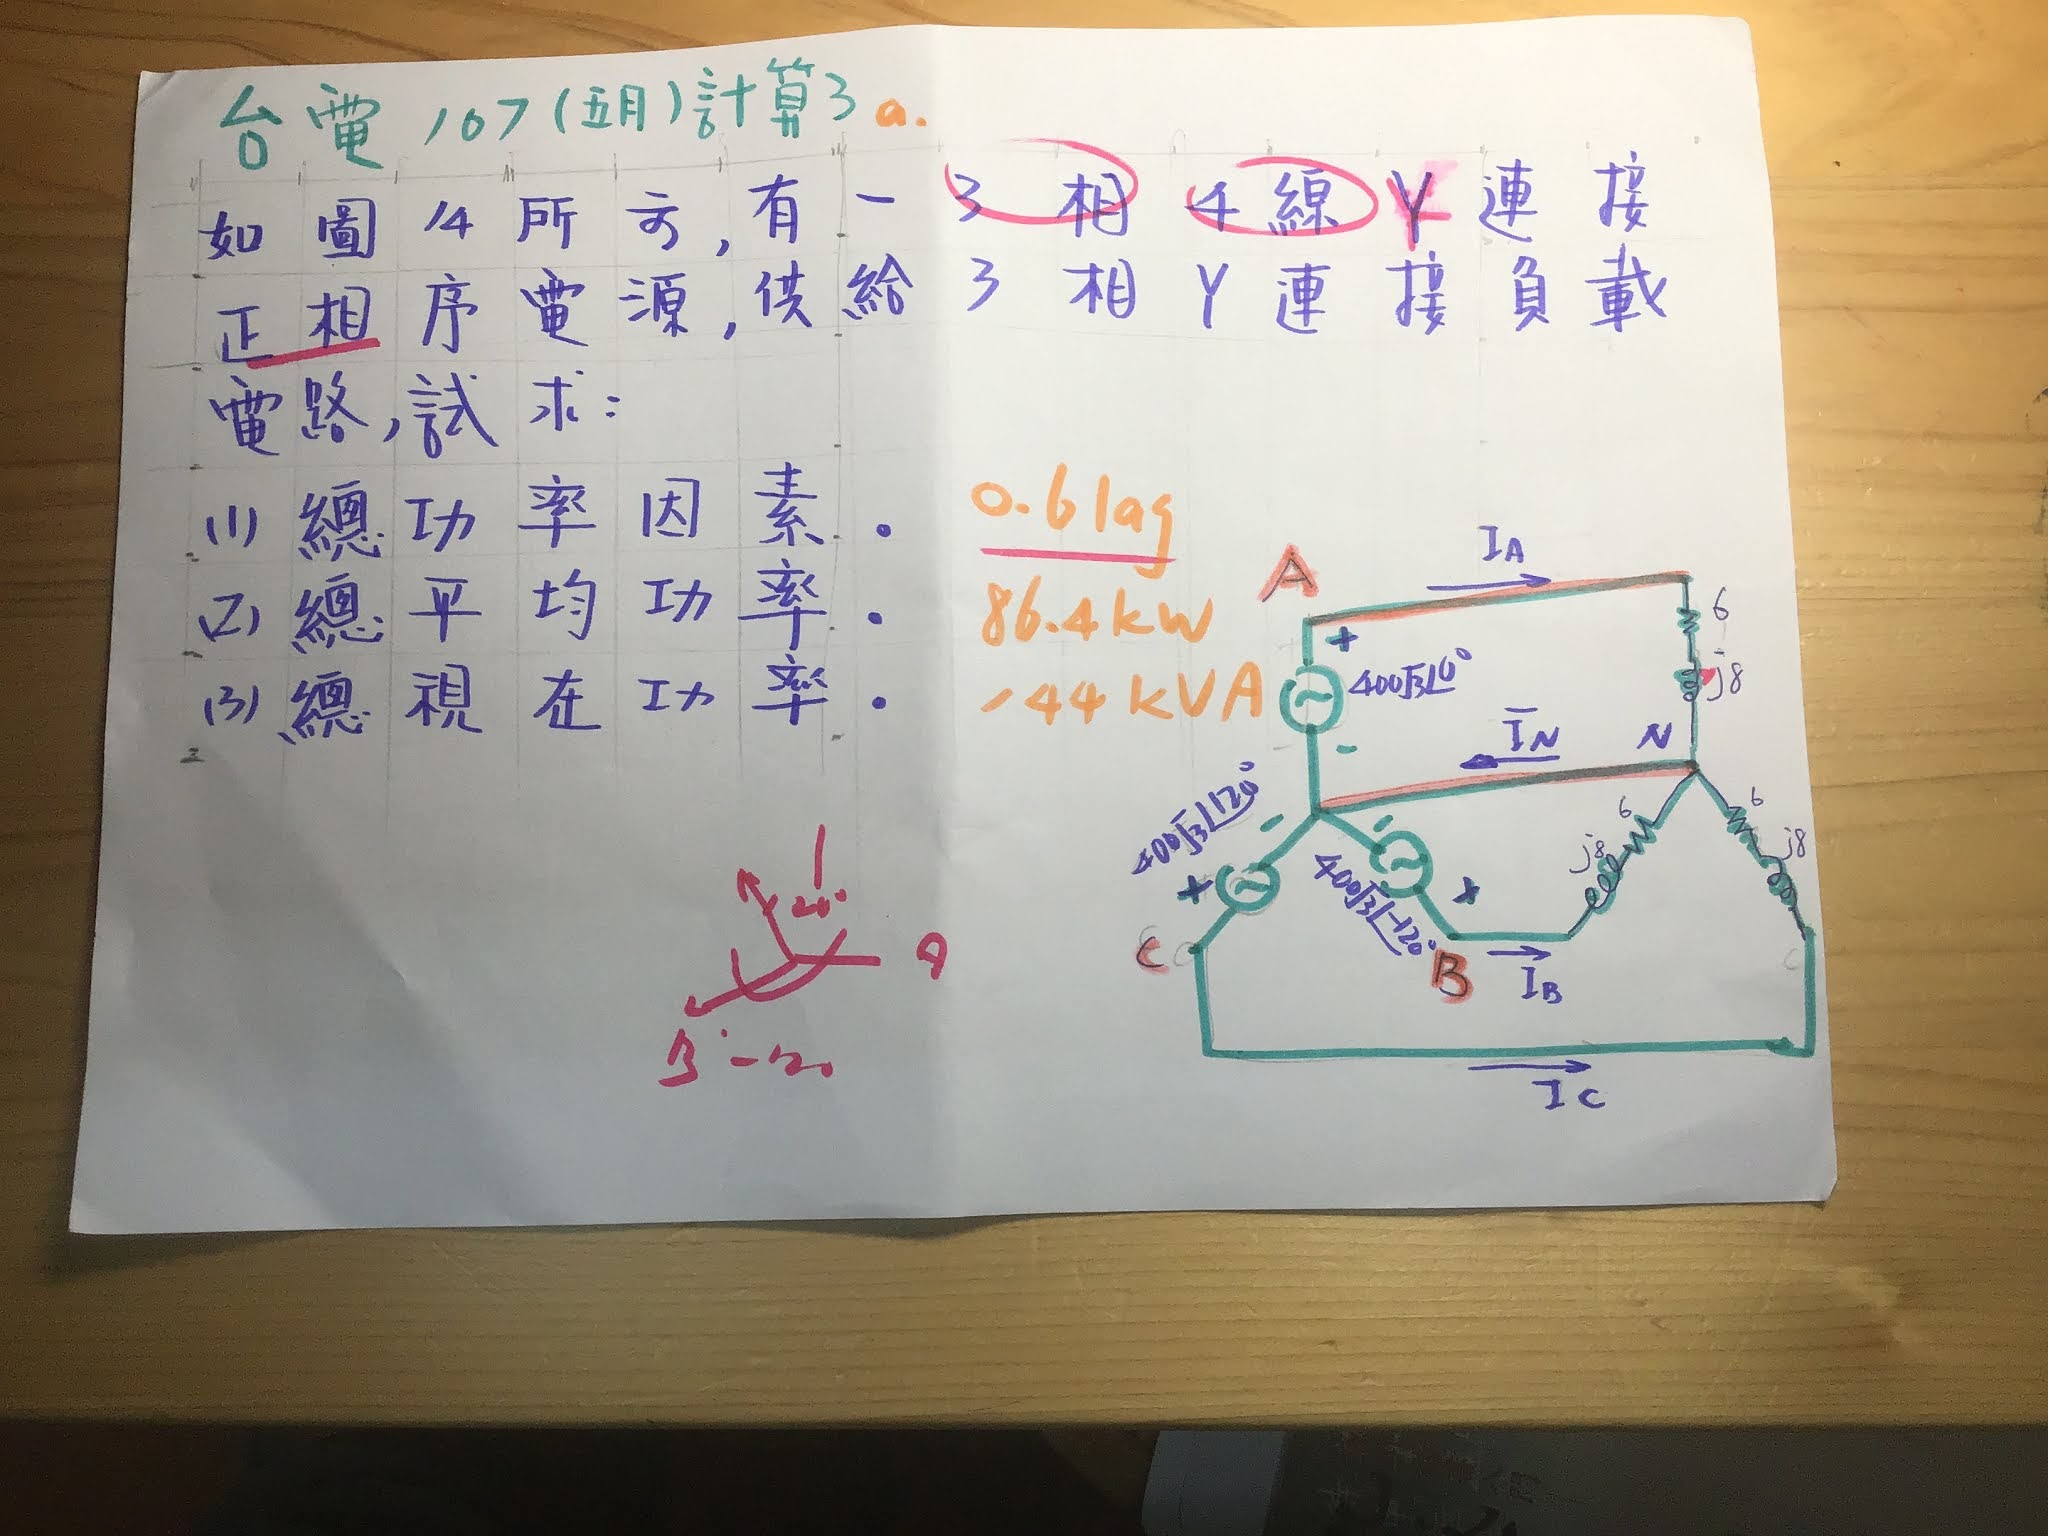 台電107(五月)計算3 a.
如圖14所示,有一3相4線Y連接
正相序電源,供給3相Y連接負載
電路,試求:
(1)總功率因素. 0.6 lag
(2)總平均功率. 86.4kW
(3)總視在功率. 144kVA
IA
A
6
+
400√3∠0°
j8
-
IN
N
400√3∠120°
-
-
6
6
j8
j8
+
400√3∠-120°
+
C
B
IB
IC
120°
A
B -120